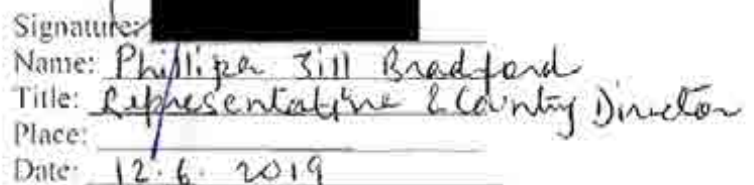 Signature:
Name: Phillipa Jill Bradford
Title: Representative & Country Director
Place:
Date: 12.6.2019